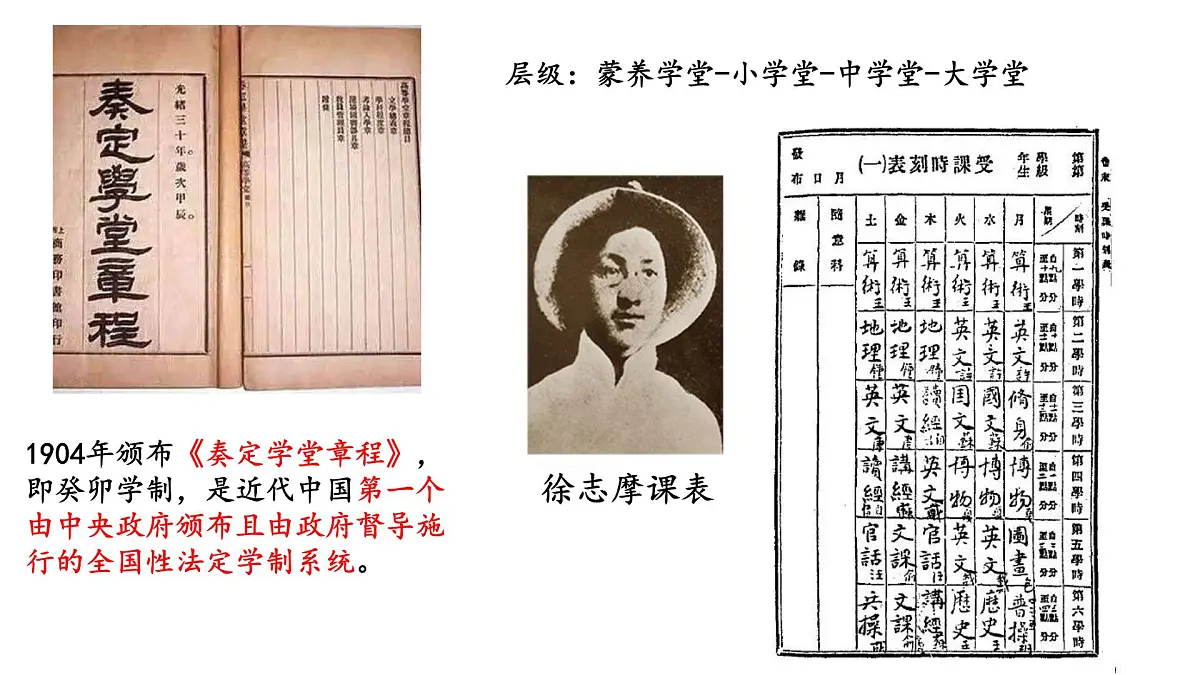 奏定學堂章程
光緒三十年歲次甲辰
上海商務印書館印行
层级：蒙养学堂-小学堂-中学堂-大学堂
1904年颁布《奏定学堂章程》，
即癸卯学制，是近代中国第一个
由中央政府颁布且由政府督导施
行的全国性法定学制系统。
徐志摩课表
第 學級 年生
受課時刻表(一)
月 日 發布
時刻 星期 月 水 火 木 金 土 隨意科 雜錄
第一學時 算術 算術 算術 算術 算術 算術
第二學時 英文 英文 英文 地理 地理 地理
第三學時 修身 國文 国文 讀經 英文 英文
第四學時 博物 博物 博物 英文 講經 讀經
第五學時 圖畫 英文 英文 官話 文課 官話
第六學時 普操 歷史 歷史 講經 文課 兵操